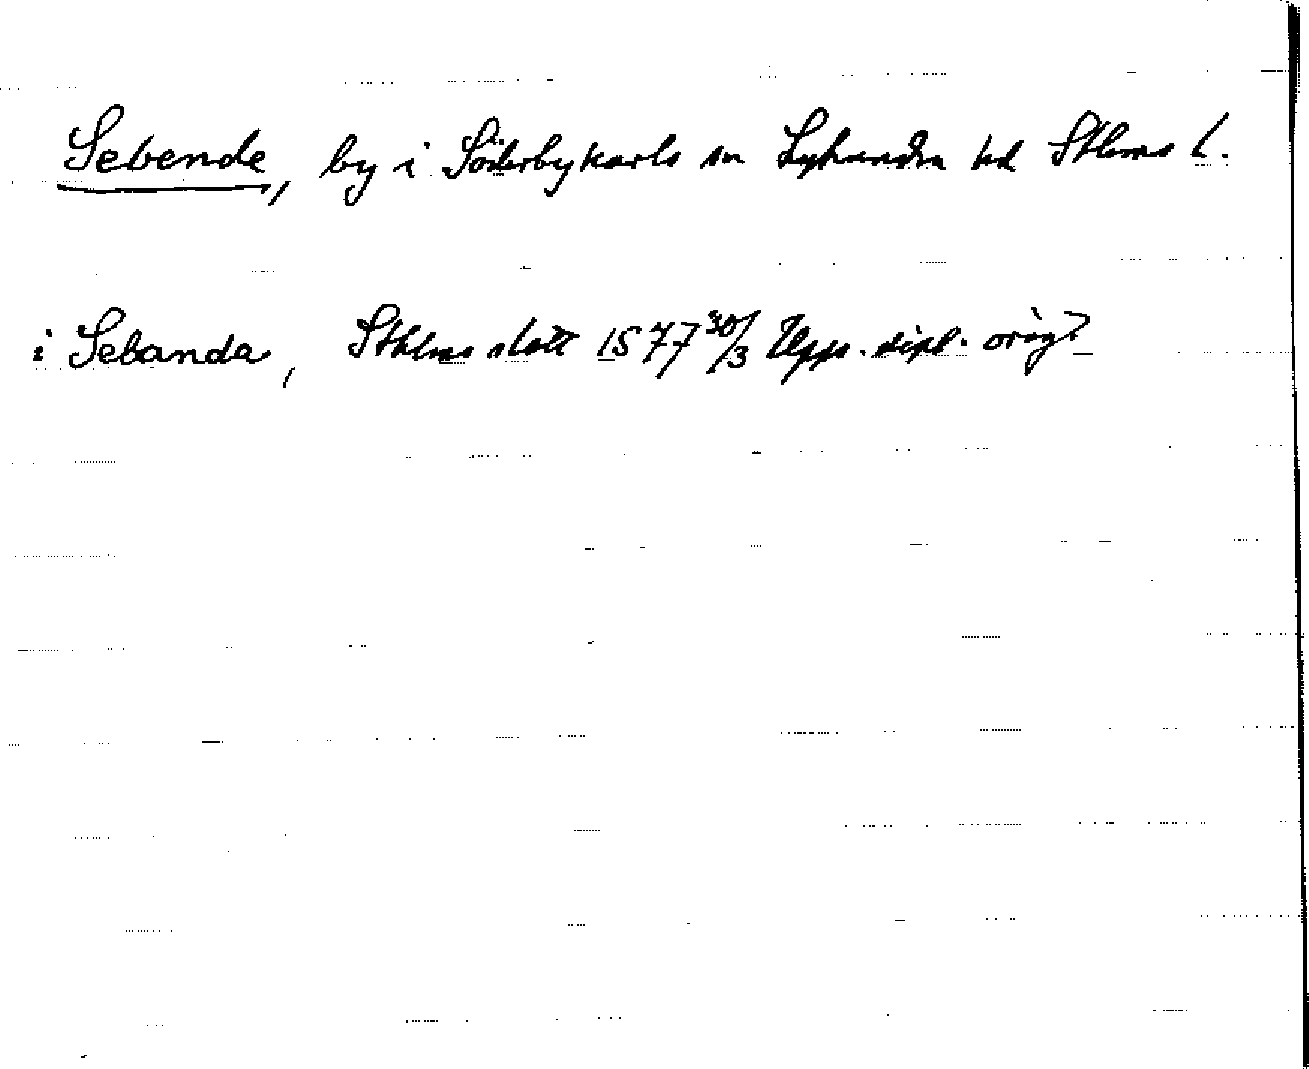 Sebende, by i Söderbykarls sn Lyhundra hd Sthlms l.
i Sebanda, Sthlms slott 1577 30/3 Upps. dipl. orig?